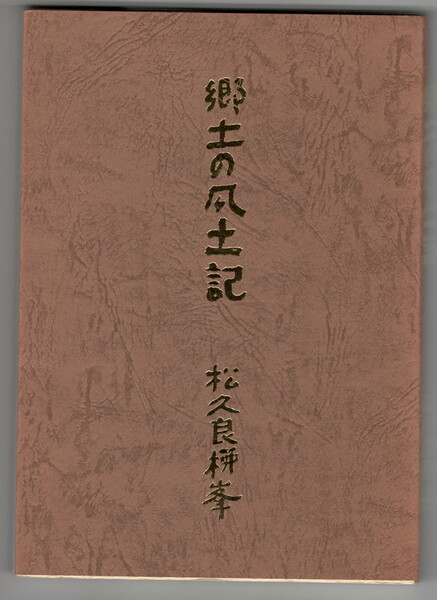 郷土の風土記
松久良栟峯